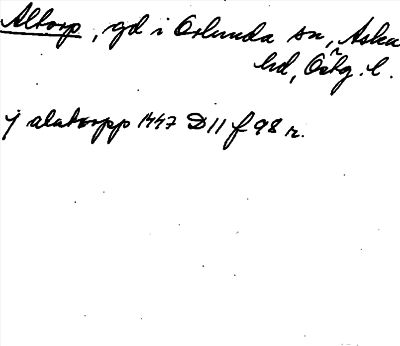 Altorp, gd i Orlunda sn, Aska
hd, Östg. l.
j alatorpp 1447 D 11 f 98 r.